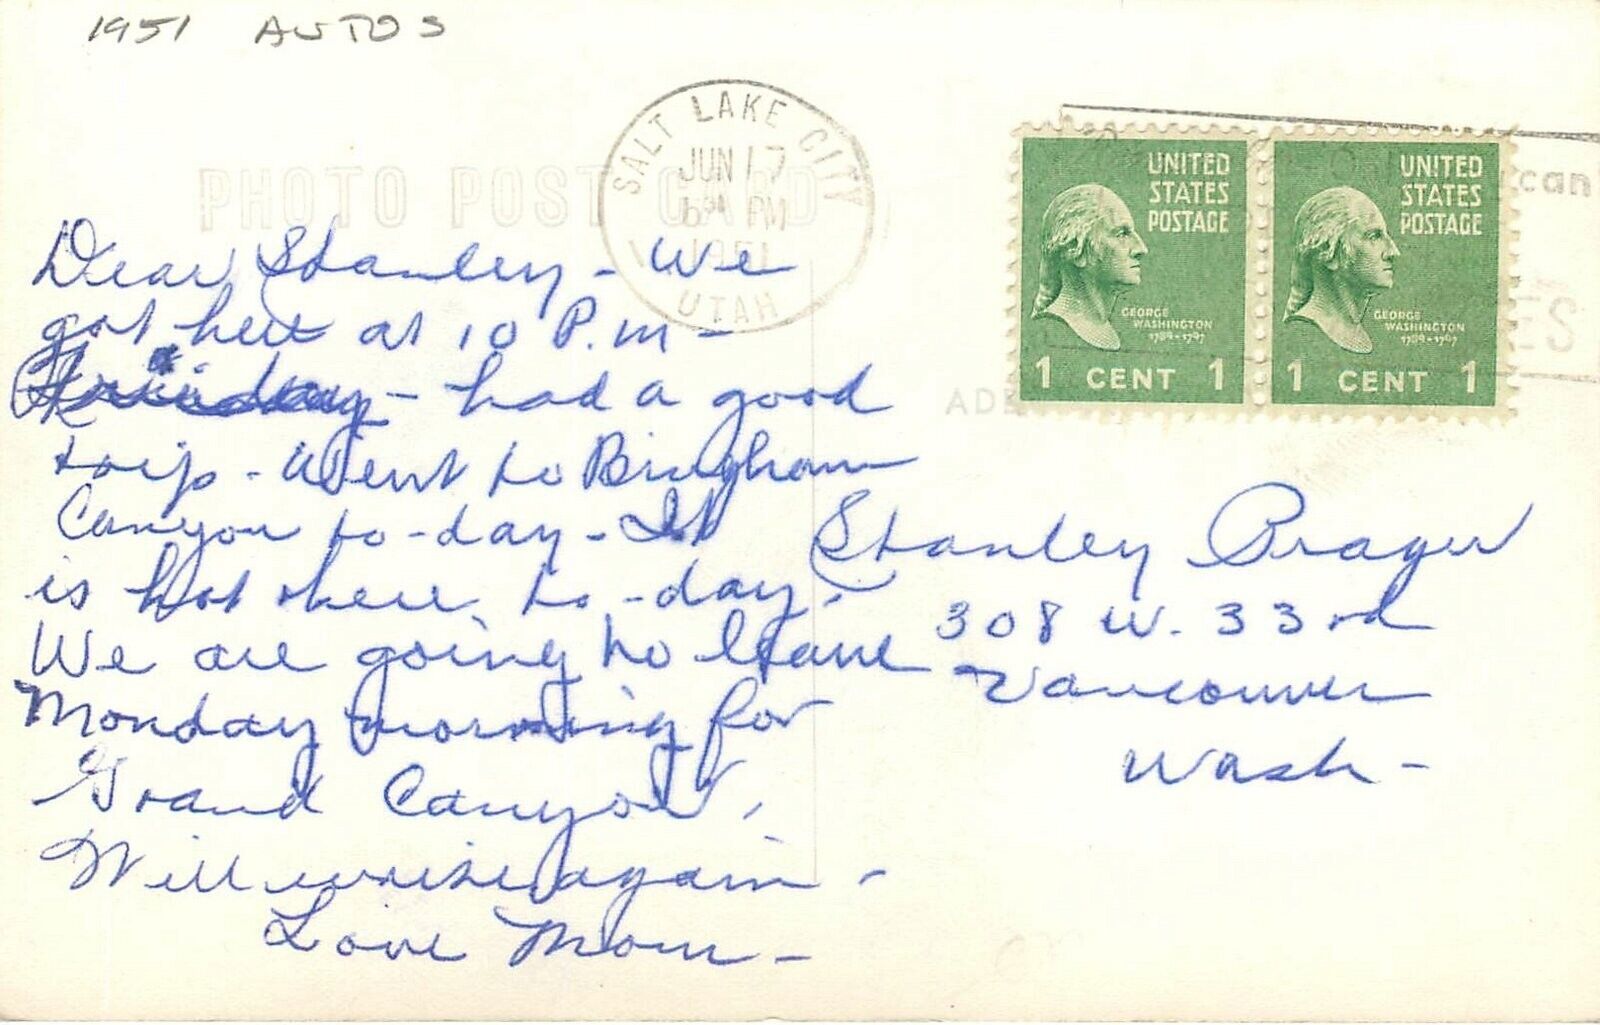 1951 AUTOS
PHOTO POST CARD
SALT LAKE CITY
JUN 17
PM
1951
UTAH
UNITED
STATES
POSTAGE
GEORGE
WASHINGTON
1789-1797
1 CENT 1
UNITED
STATES
POSTAGE
GEORGE
WASHINGTON
1789-1797
1 CENT 1
can
ES
Dear Stanley - We
got here at 10 P.M -
- had a good
trip - Went to Bingham
Canyon to-day - It
is hot here to-day.
We are going to leave
Monday morning for
Grand Canyon,
Will write again -
Love Mom -
Stanley Prager
308 W. 33rd
Vancouver
Wash -